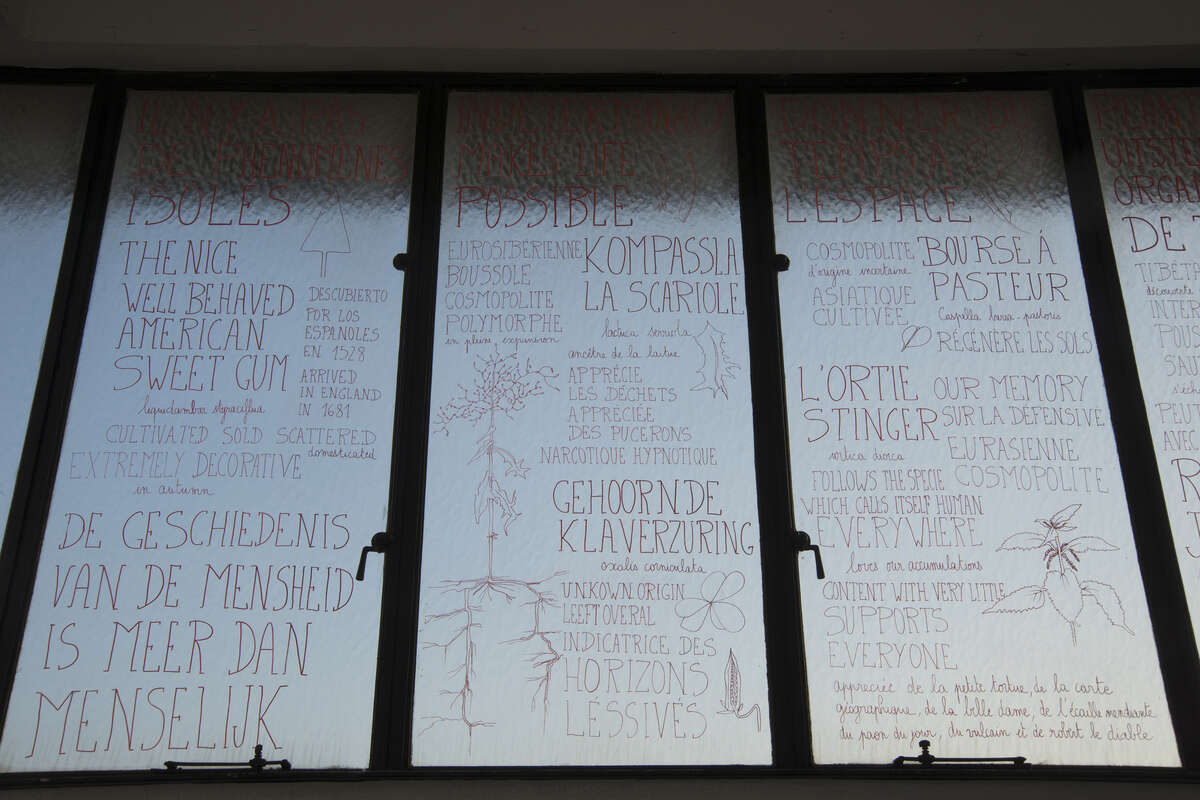 DE PHÉNOMÈNES
ISOLÉS
THE NICE
WELL BEHAVED
AMERICAN
SWEET GUM
liquidambar styraciflua
DESCUBIERTO
POR LOS
ESPANOLES
EN 1528
ARRIVED
IN ENGLAND
IN 1681
CULTIVATED SOLD SCATTERED
domesticated
EXTREMELY DECORATIVE
in autumn
DE GESCHIEDENIS
VAN DE MENSHEID
IS MEER DAN
MENSELIJK
MAKES LIFE
POSSIBLE
EUROSIBÉRIENNE
BOUSSOLE
COSMOPOLITE
POLYMORPHE
en pleine expansion
KOMPASSLA
LA SCARIOLE
lactuca serriola
ancêtre de la laitue
APPRÉCIE
LES DÉCHETS
APPRÉCIÉE
DES PUCERONS
NARCOTIQUE HYPNOTIQUE
GEHOORNDE
KLAVERZURING
oxalis corniculata
UNKOWN ORIGIN
LEEFT OVERAL
INDICATRICE DES
HORIZONS
LESSIVÉS
L'ESPACE
COSMOPOLITE
d'origine incertaine
ASIATIQUE
CULTIVÉE
BOURSE À
PASTEUR
RÉGÉNÈRE LES SOLS
L'ORTIE
STINGER
OUR MEMORY
SUR LA DÉFENSIVE
EURASIENNE
COSMOPOLITE
FOLLOWS THE SPECIE
WHICH CALLS ITSELF HUMAN
EVERYWHERE
loves our accumulations
CONTENT WITH VERY LITTLE
SUPPORTS
EVERYONE
appréciée de la petite tortue, de la carte
géographique, de la belle dame, de l'écaille mendiante
du paon du jour, du vulcain et de robert le diable
ORGA
DE